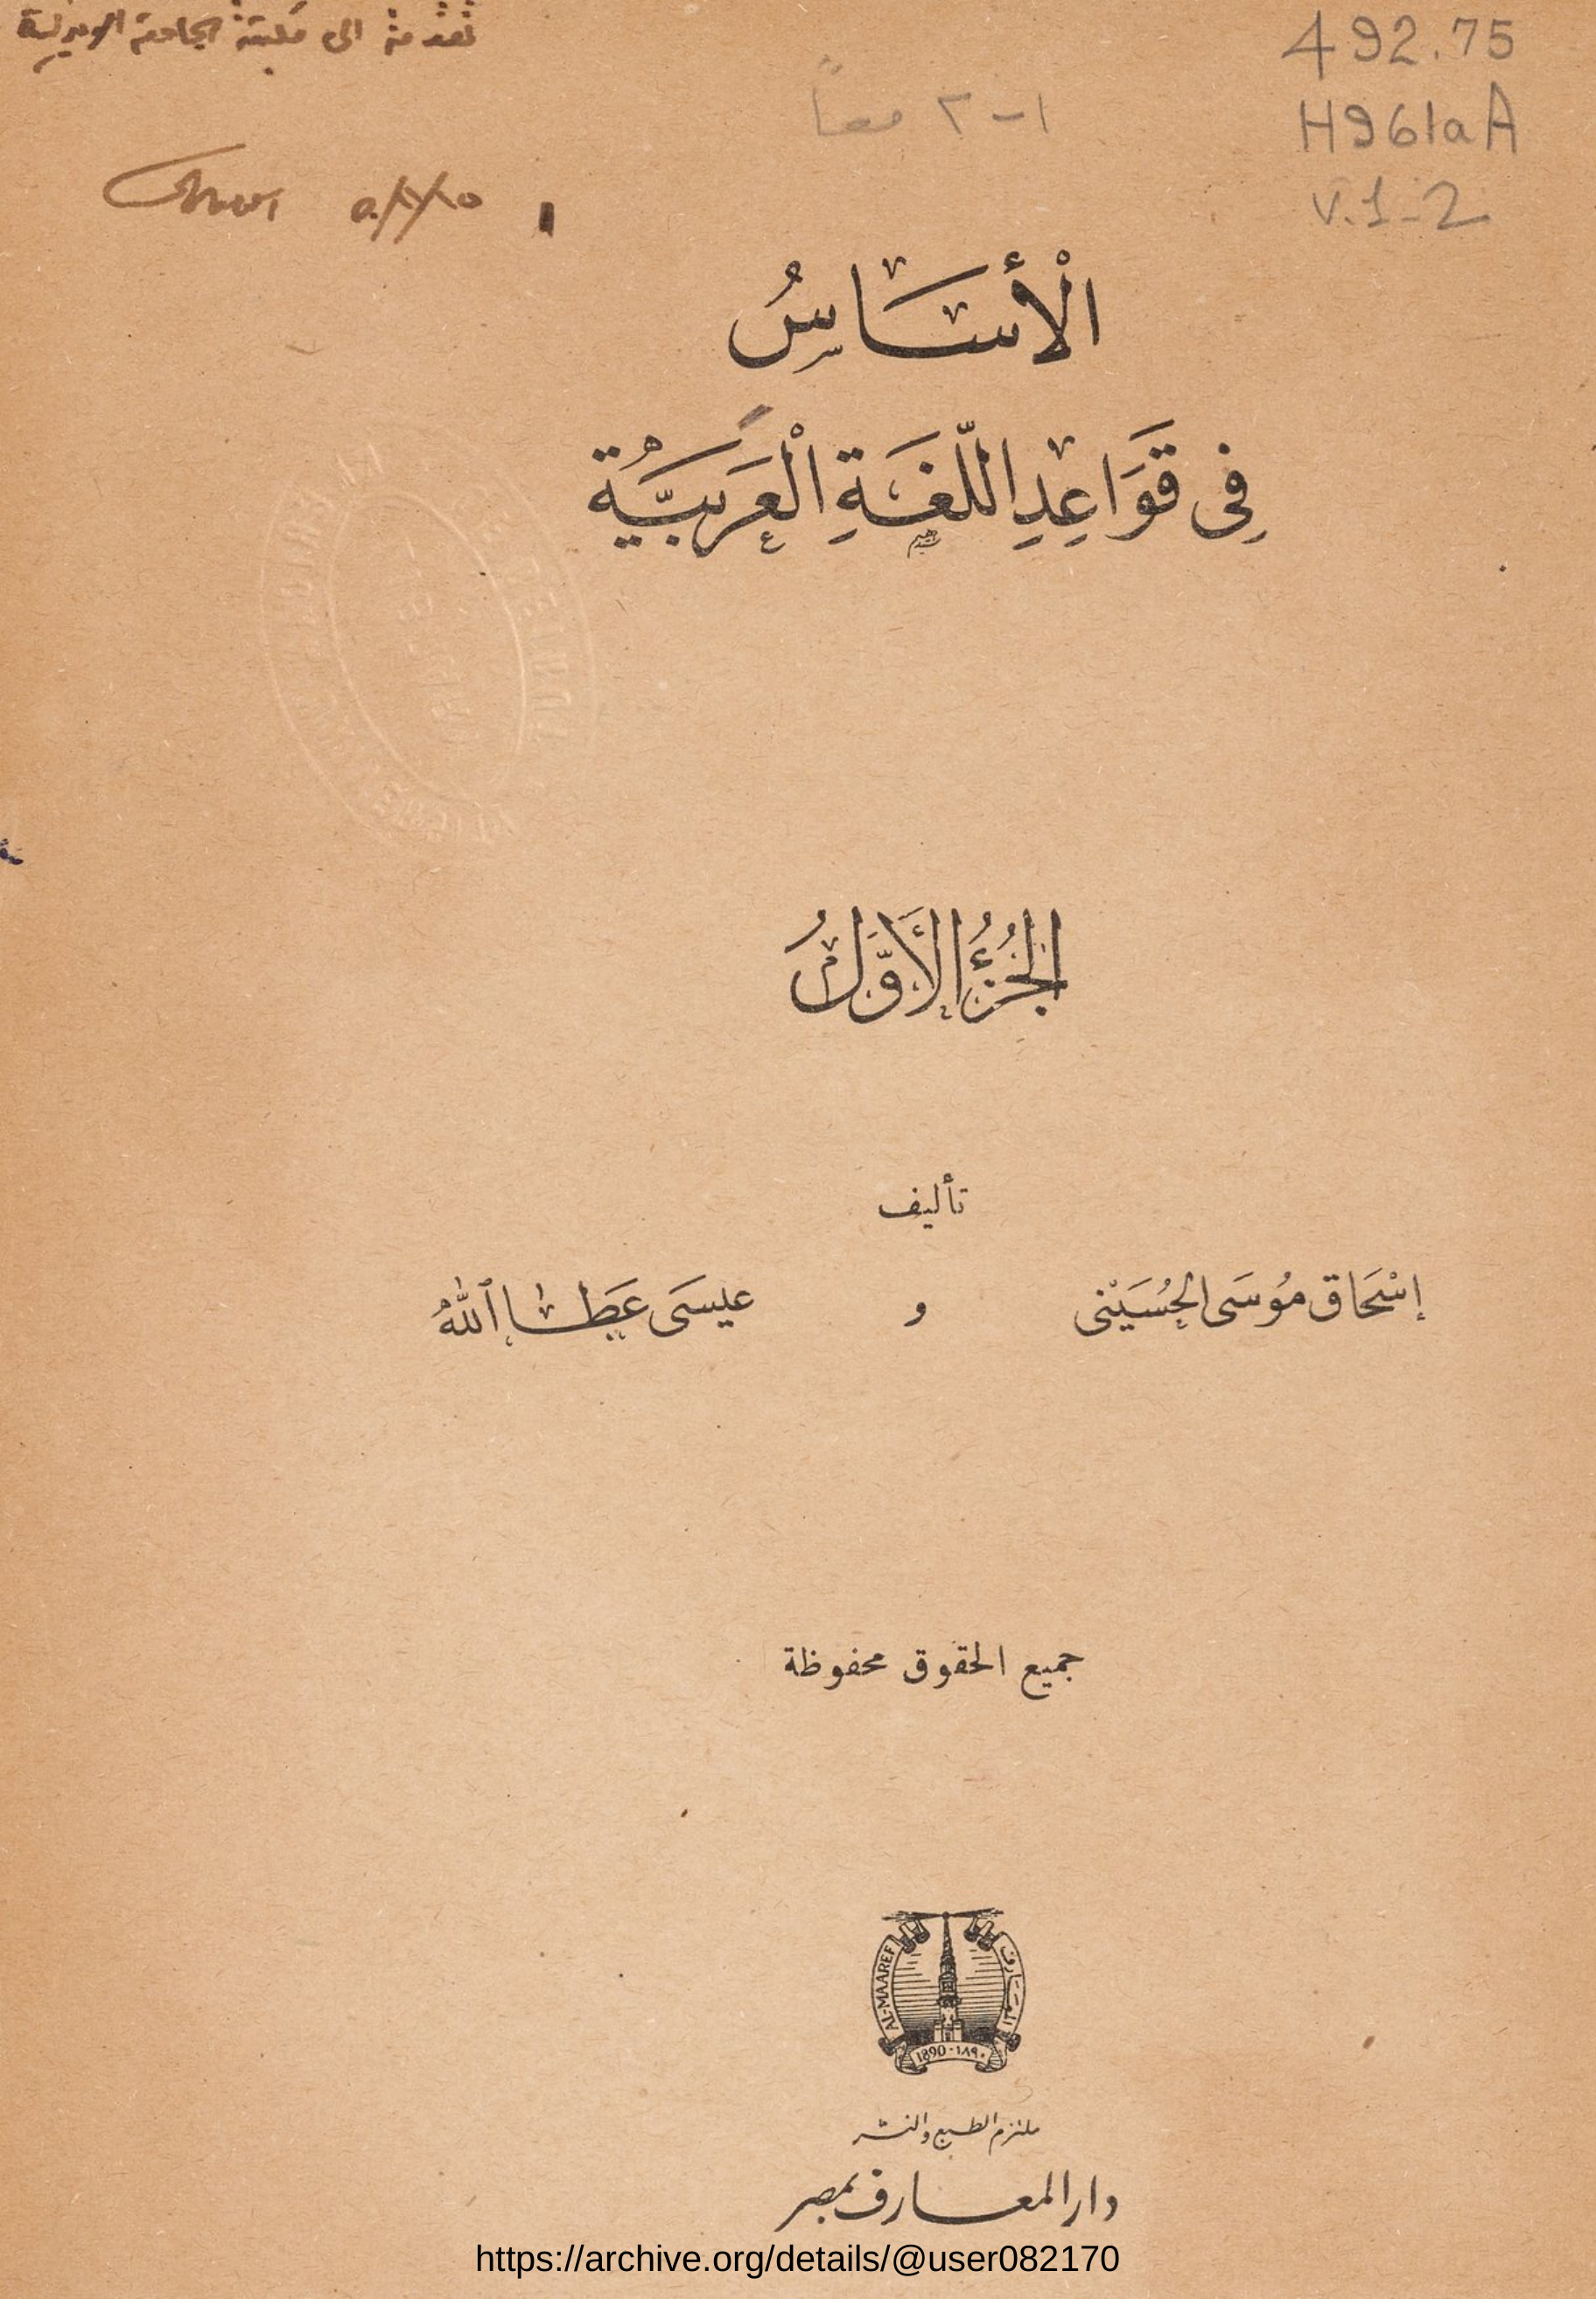 تقدمة الى مكتبة الجامعة الاميركية
492.75
H961aA
V.1-2
١-٢ معاً
الْأَسَاسُ
فِى قَوَاعِدِ اللّغَةِ الْعَرَبِيَّةِ
الجُزْءُ الأَوَّلُ
تأليف
إسْحَاق مُوسَى الحُسَيْنى و عيسَى عَطَا ٱللهُ
جميع الحقوق محفوظة
AL-MAAREF المعارف
1890 - ١٨٩٠
ملتزم الطبع والنشر
دار المعارف بمصر
https://archive.org/details/@user082170